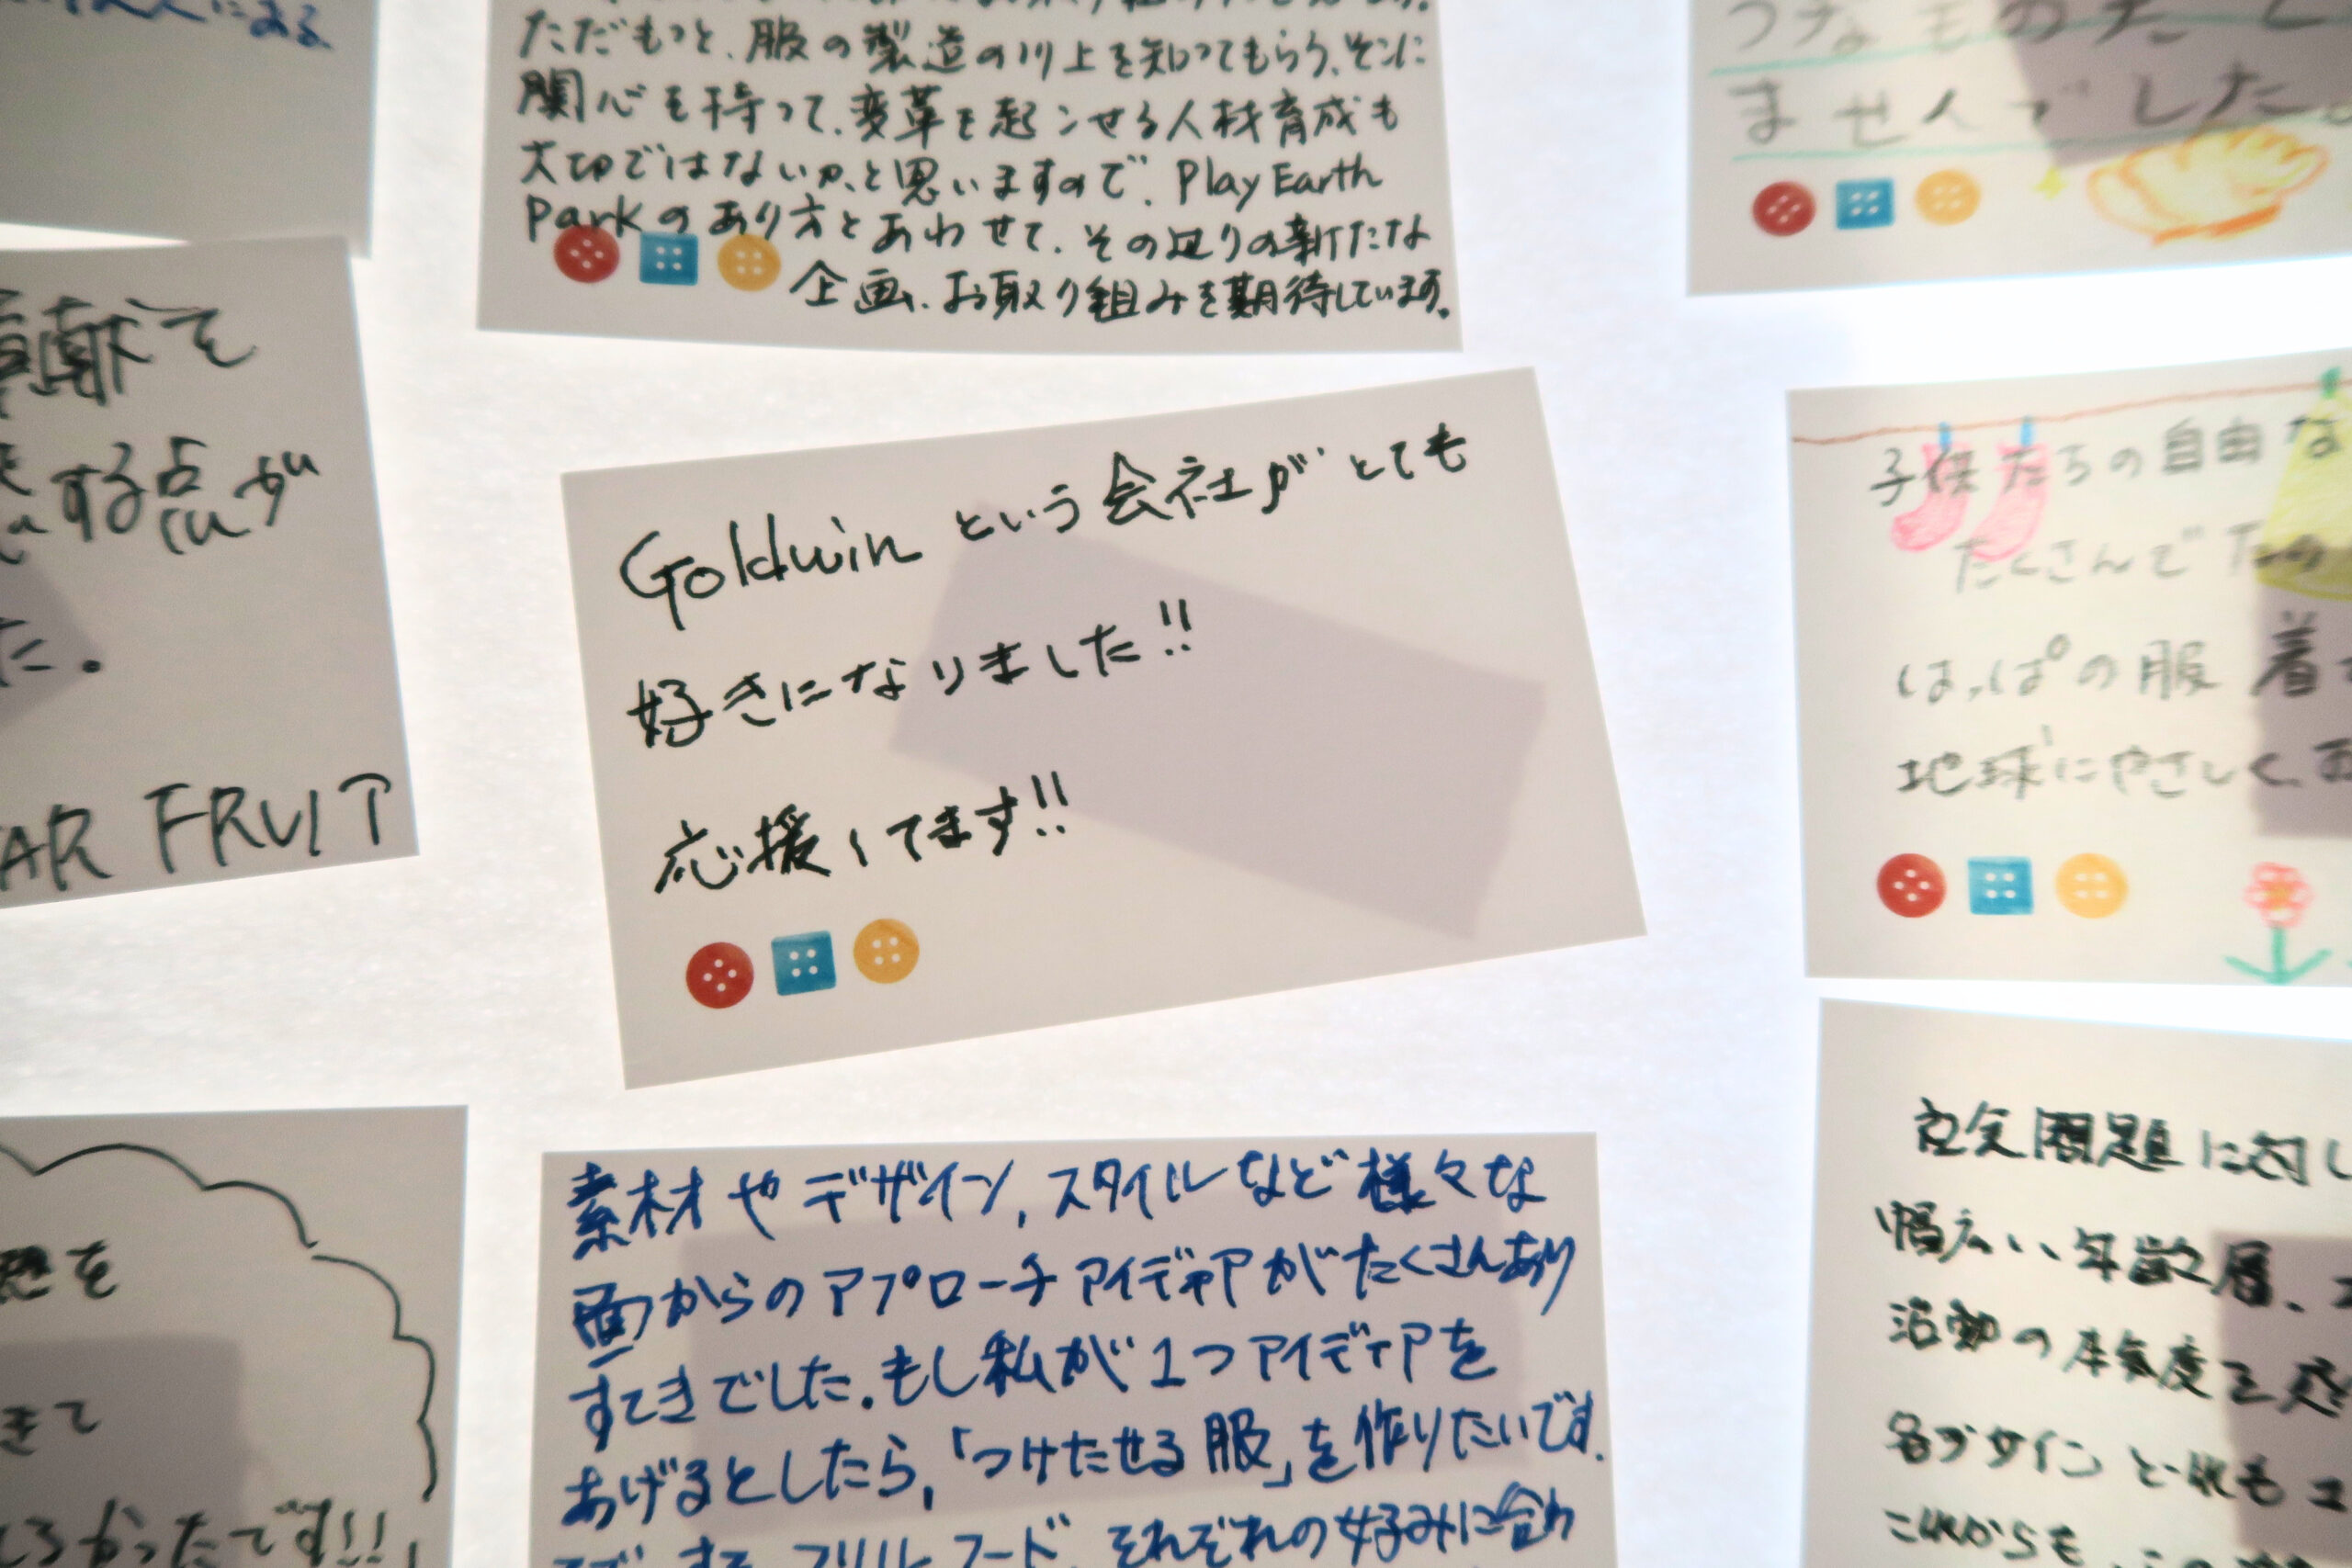 ただもっと、服の製造の川上を知ってもらう、そこに
関心を持って、変革を起こせる人材育成も
大切ではないか、と思いますので、Play Earth
Parkのあり方とあわせて、その辺りの新たな
企画、お取り組みを期待しています。
ませんでした。
貢献を
する点が
た。
FRUIT
Goldwinという会社がとても
好きになりました!!
応援してます!!
子供たちの自由な
たくさんで
はっぱの服 着
地球にやさしく、
きて
かったです!!
素材やデザイン、スタイルなど様々な
面からのアプローチアイディアがたくさんあり
すてきでした。もし私が1つアイディアを
あげるとしたら、「つけたせる服」を作りたいです。
フリル、フード、それぞれの好みに合わ
問題に対し
幅広い年齢層、
活動の本気度を感
各デザインどれも
これからも